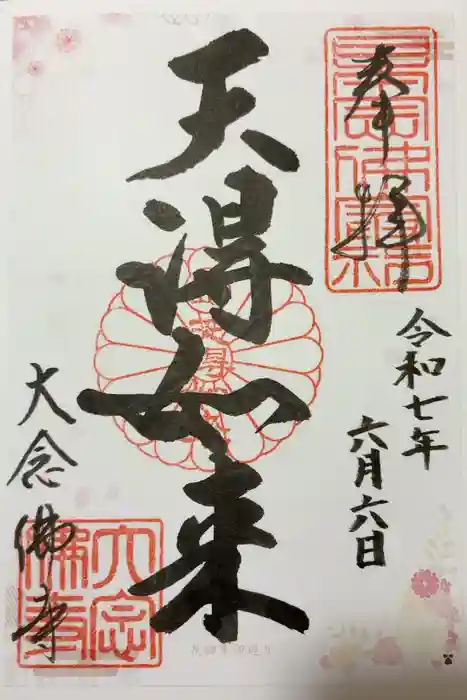 奉拝
令和七年
六月六日
天得如来
大念佛寺
大念
佛寺